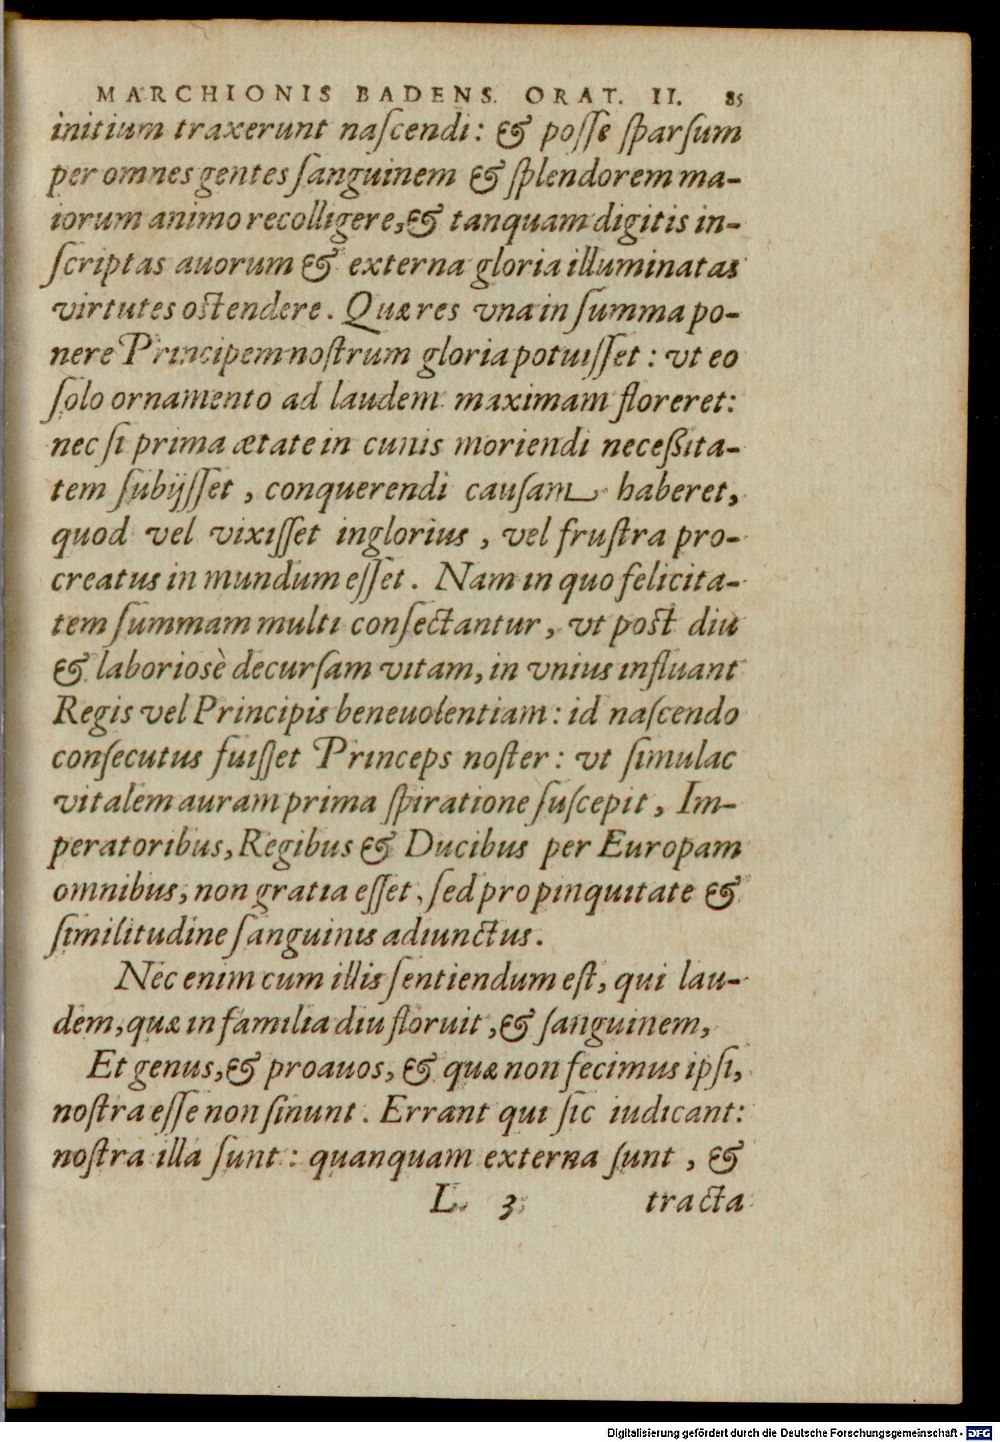 MARCHIONIS BADENS. ORAT. II. 85
initium traxerunt naſcendi: & poſſe ſparſum
per omnes gentes ſanguinem & ſplendorem ma-
iorum animo recolligere, & tanquam digitis in-
ſcriptas auorum & externa gloria illuminatas
virtutes oſtendere. Quæ res vna in ſumma po-
nere Principem noſtrum gloria potuiſſet: vt eo
ſolo ornamento ad laudem maximam floreret:
nec ſi prima ætate in cunis moriendi neceßita-
tem ſubijſſet, conquerendi cauſam haberet,
quod vel vixiſſet inglorius, vel fruſtra pro-
creatus in mundum eſſet. Nam in quo felicita-
tem ſummam multi conſectantur, vt poſt diu
& laboriosè decurſam vitam, in vnius influant
Regis vel Principis beneuolentiam: id naſcendo
conſecutus fuiſſet Princeps noſter: vt ſimulac
vitalem auram prima ſpiratione ſuſcepit, Im-
peratoribus, Regibus & Ducibus per Europam
omnibus, non gratia eſſet, ſed propinquitate &
ſimilitudine ſanguinis adiunctus.
Nec enim cum illis ſentiendum eſt, qui lau-
dem, quæ in familia diu floruit, & ſanguinem,
Et genus, & proauos, & quæ non fecimus ipſi,
noſtra eſſe non ſinunt. Errant qui ſic iudicant:
noſtra illa ſunt: quanquam externa ſunt, &
L 3 tracta
Digitalisierung gefördert durch die Deutsche Forschungsgemeinschaft - DFG